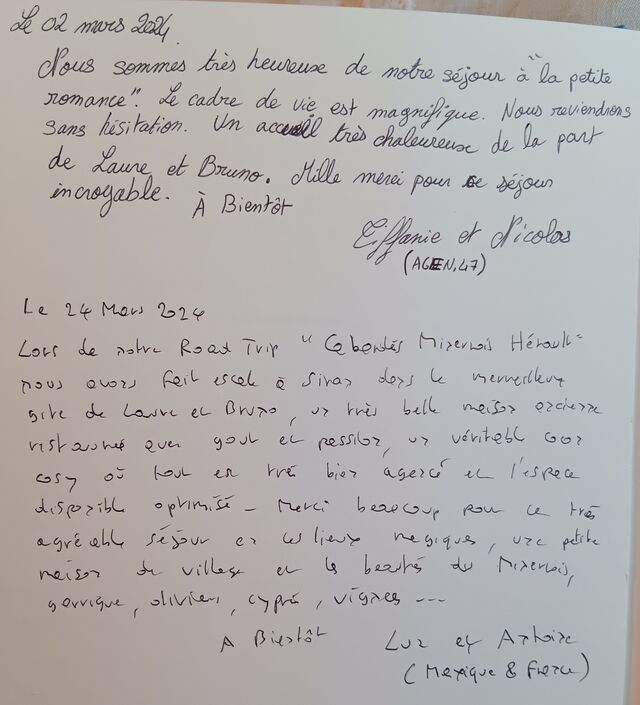 Le 02 mars 2024.
Nous sommes très heureuse de notre séjour à "la petite
romance". Le cadre de vie est magnifique. Nous reviendrons
sans hésitation. Un accueil très chaleureuse de la part
de Laure et Bruno. Mille merci pour ce séjour
incroyable. À Bientôt
Tiffanie et Nicolas
(AGEN, 47)
Le 24 Mars 2024
Lors de notre Road Trip "Cabardès Minervois Hérault"
nous avons fait escale à Siran dans le merveilleux
gite de Laure et Bruno, un très belle maison ancienne
restaurée avec gout et passion, un véritable coon
cosy où tout en tré bien agencé et l'espace
disponible optimisé - Merci beaucoup pour ce très
agréable séjour en ces lieux magiques, une petite
maison de village et les beautés du Minervois,
garrigue, oliviers, cyprès, vignes ---
A Bientôt
Luz et Antoine
(Mexique & France)